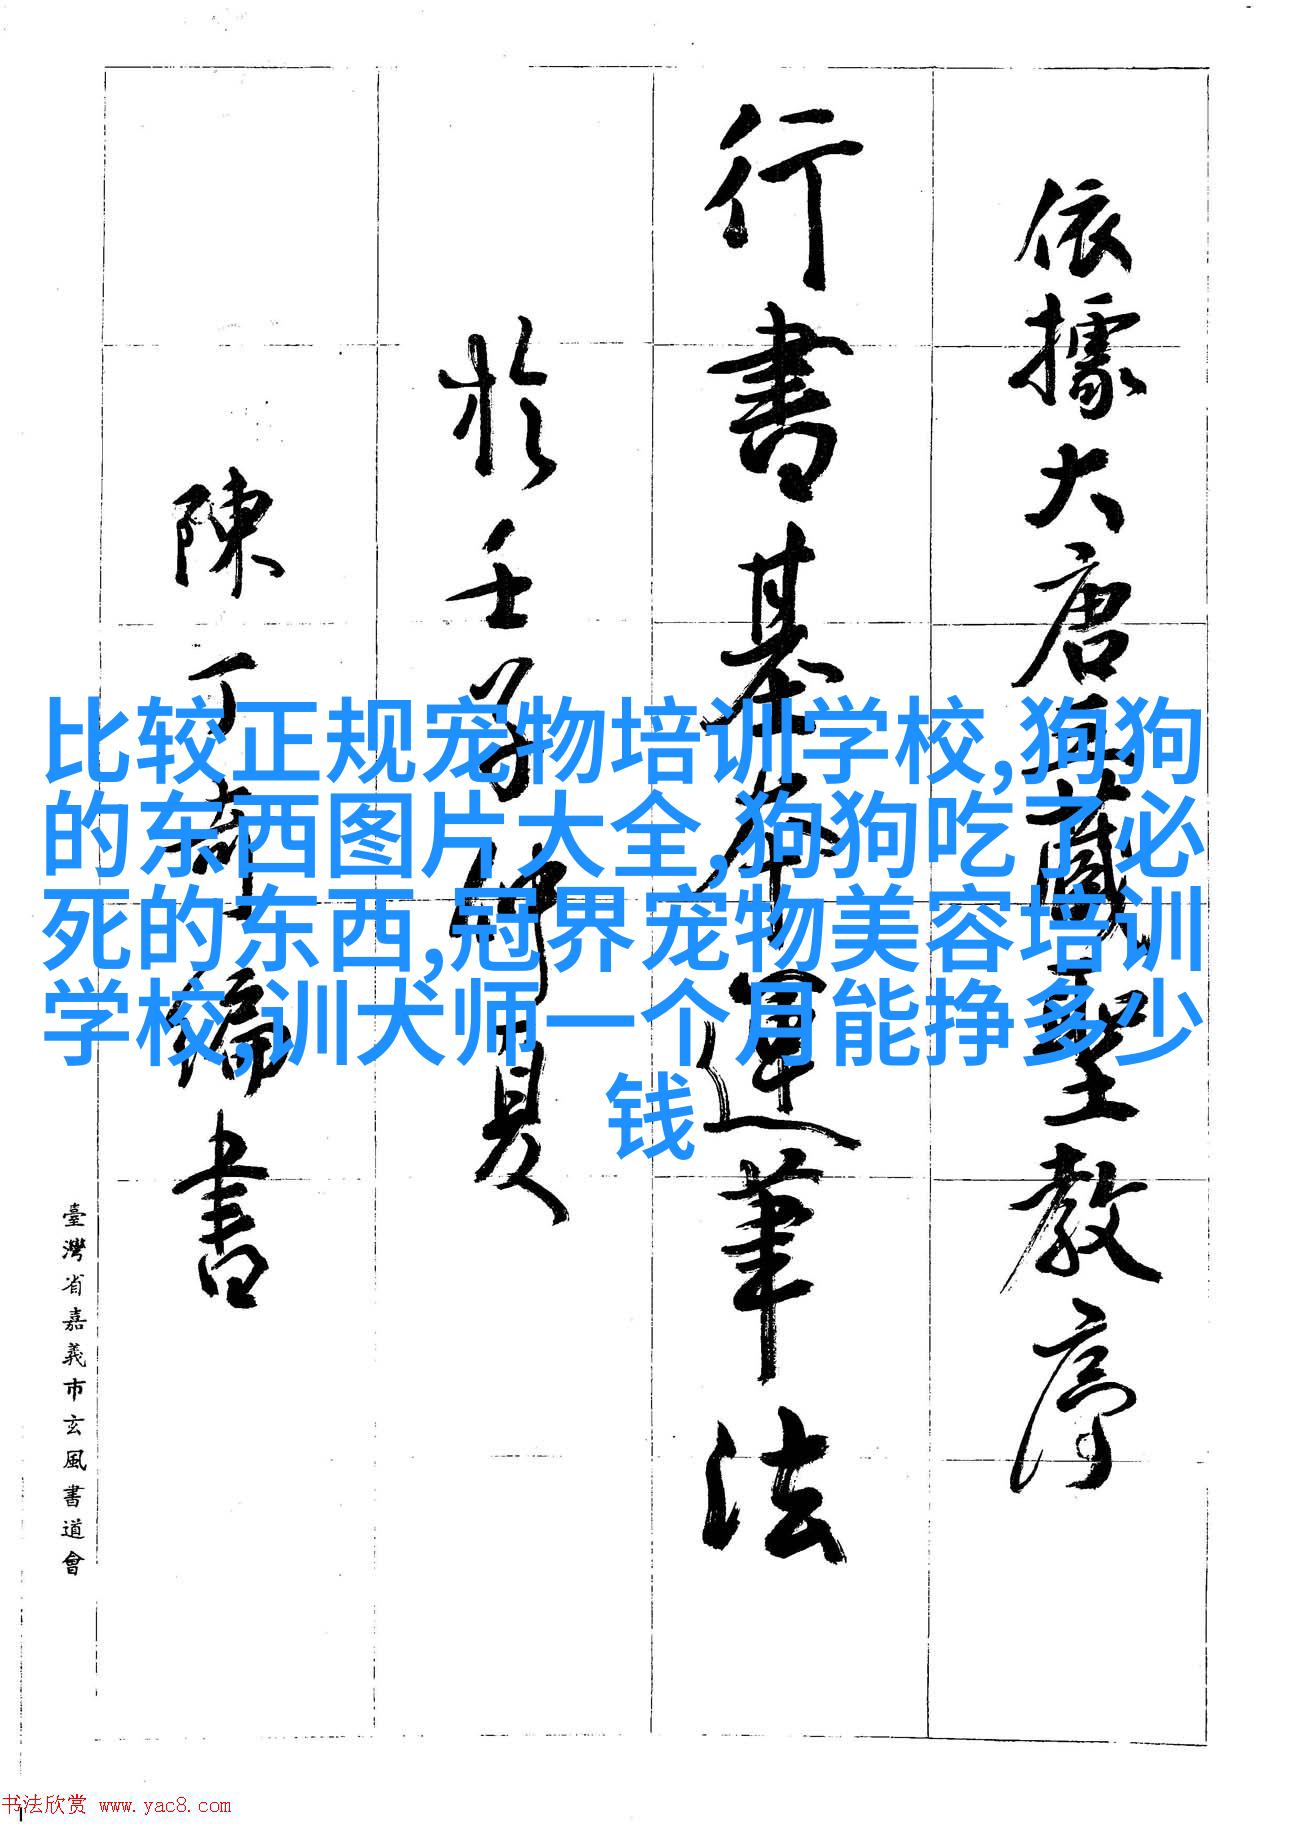 依據大唐三藏聖教序
行書基本運筆法
於壬子仲夏
陳丁奇編書
臺灣省嘉義市玄風書道會
比较正规宠物培训学校,狗狗
的东西图片大全,狗狗吃了必
死的东西,冠界宠物美容培训
学校,训犬师一个月能挣多少
钱
书法欣赏 www.yac8.com